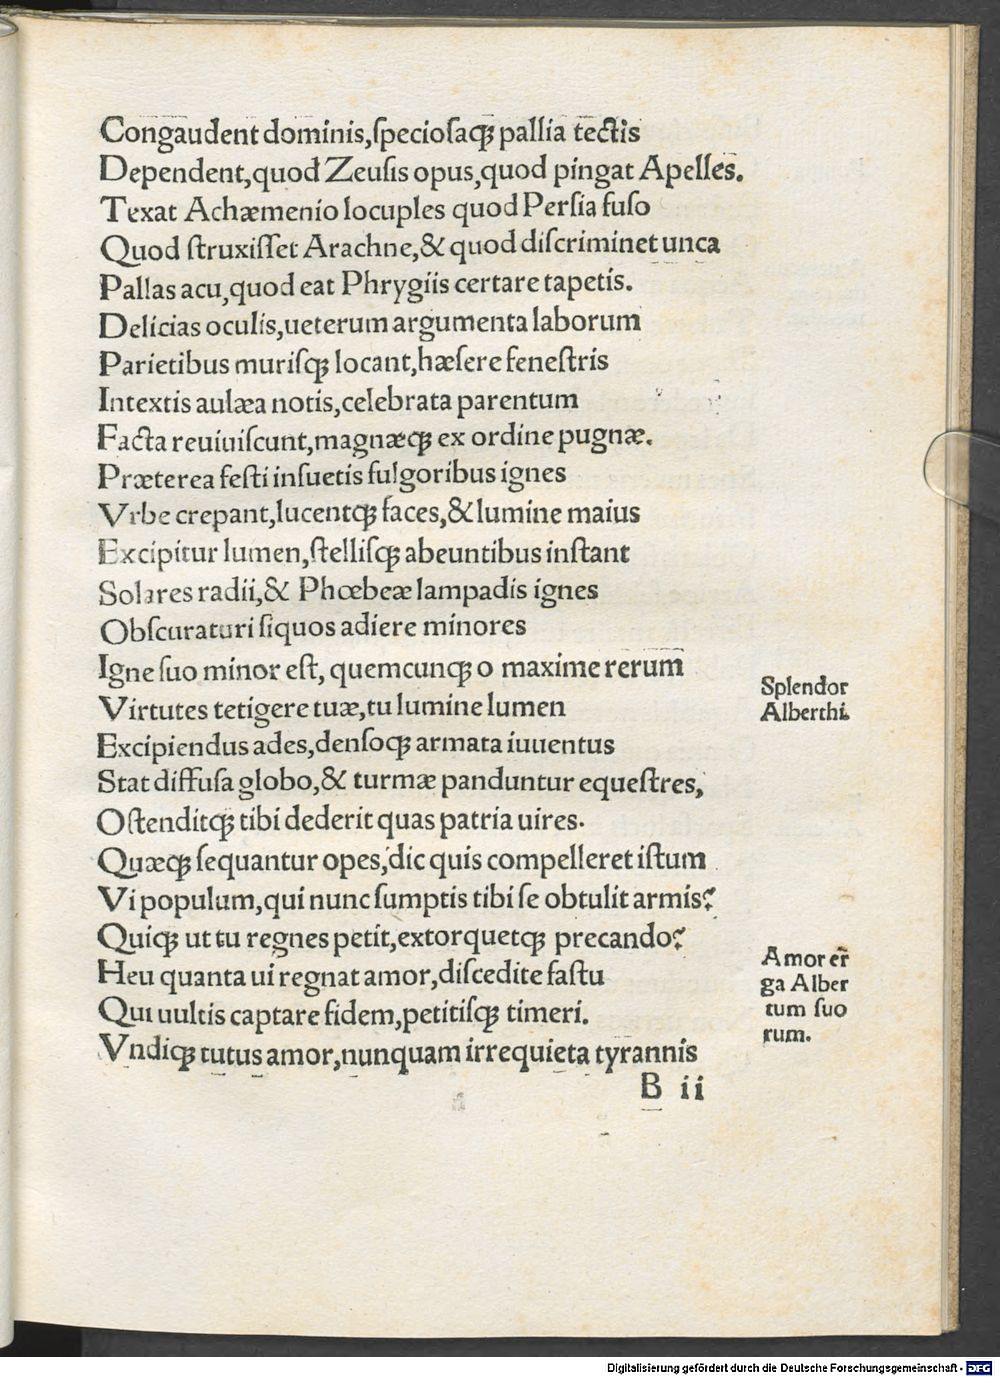 Congaudent dominis,ſpecioſaqꝫ pallia tectis
Dependent,quod Zeuſis opus,quod pingat Apelles.
Texat Achæmenio locuples quod Perſia fuſo
Quod ſtruxiſſet Arachne,& quod diſcriminet unca
Pallas acu,quod eat Phrygiis certare tapetis.
Delicias oculis,ueterum argumenta laborum
Parietibus muriſqꝫ locant,hæſere feneſtris
Intextis aulæa notis,celebrata parentum
Facta reuiuiſcunt,magnæqꝫ ex ordine pugnæ.
Præterea feſti inſuetis fulgoribus ignes
Vrbe crepant,lucentqꝫ faces,& lumine maius
Excipitur lumen,ſtelliſqꝫ abeuntibus inſtant
Solares radii,& Phœbeæ lampadis ignes
Obſcuraturi ſiquos adiere minores
Igne ſuo minor eſt, quemcunqꝫ o maxime rerum
Virtutes tetigere tuæ,tu lumine lumen
Splendor
Alberthi.
Excipiendus ades,denſoqꝫ armata iuuentus
Stat diffuſa globo,& turmæ panduntur equeſtres,
Oſtenditqꝫ tibi dederit quas patria uires.
Quæqꝫ ſequantur opes,dic quis compelleret iſtum
Vi populum,qui nunc ſumptis tibi ſe obtulit armis?
Quiqꝫ ut tu regnes petit,extorquetqꝫ precando?
Heu quanta ui regnat amor,diſcedite faſtu
Qui uultis captare fidem,petitiſqꝫ timeri.
Vndiqꝫ tutus amor,nunquam irrequieta tyrannis
Amor er̃
ga Alber
tum ſuo
rum.
B ii
Digitalisierung gefördert durch die Deutsche Forschungsgemeinschaft - DFG